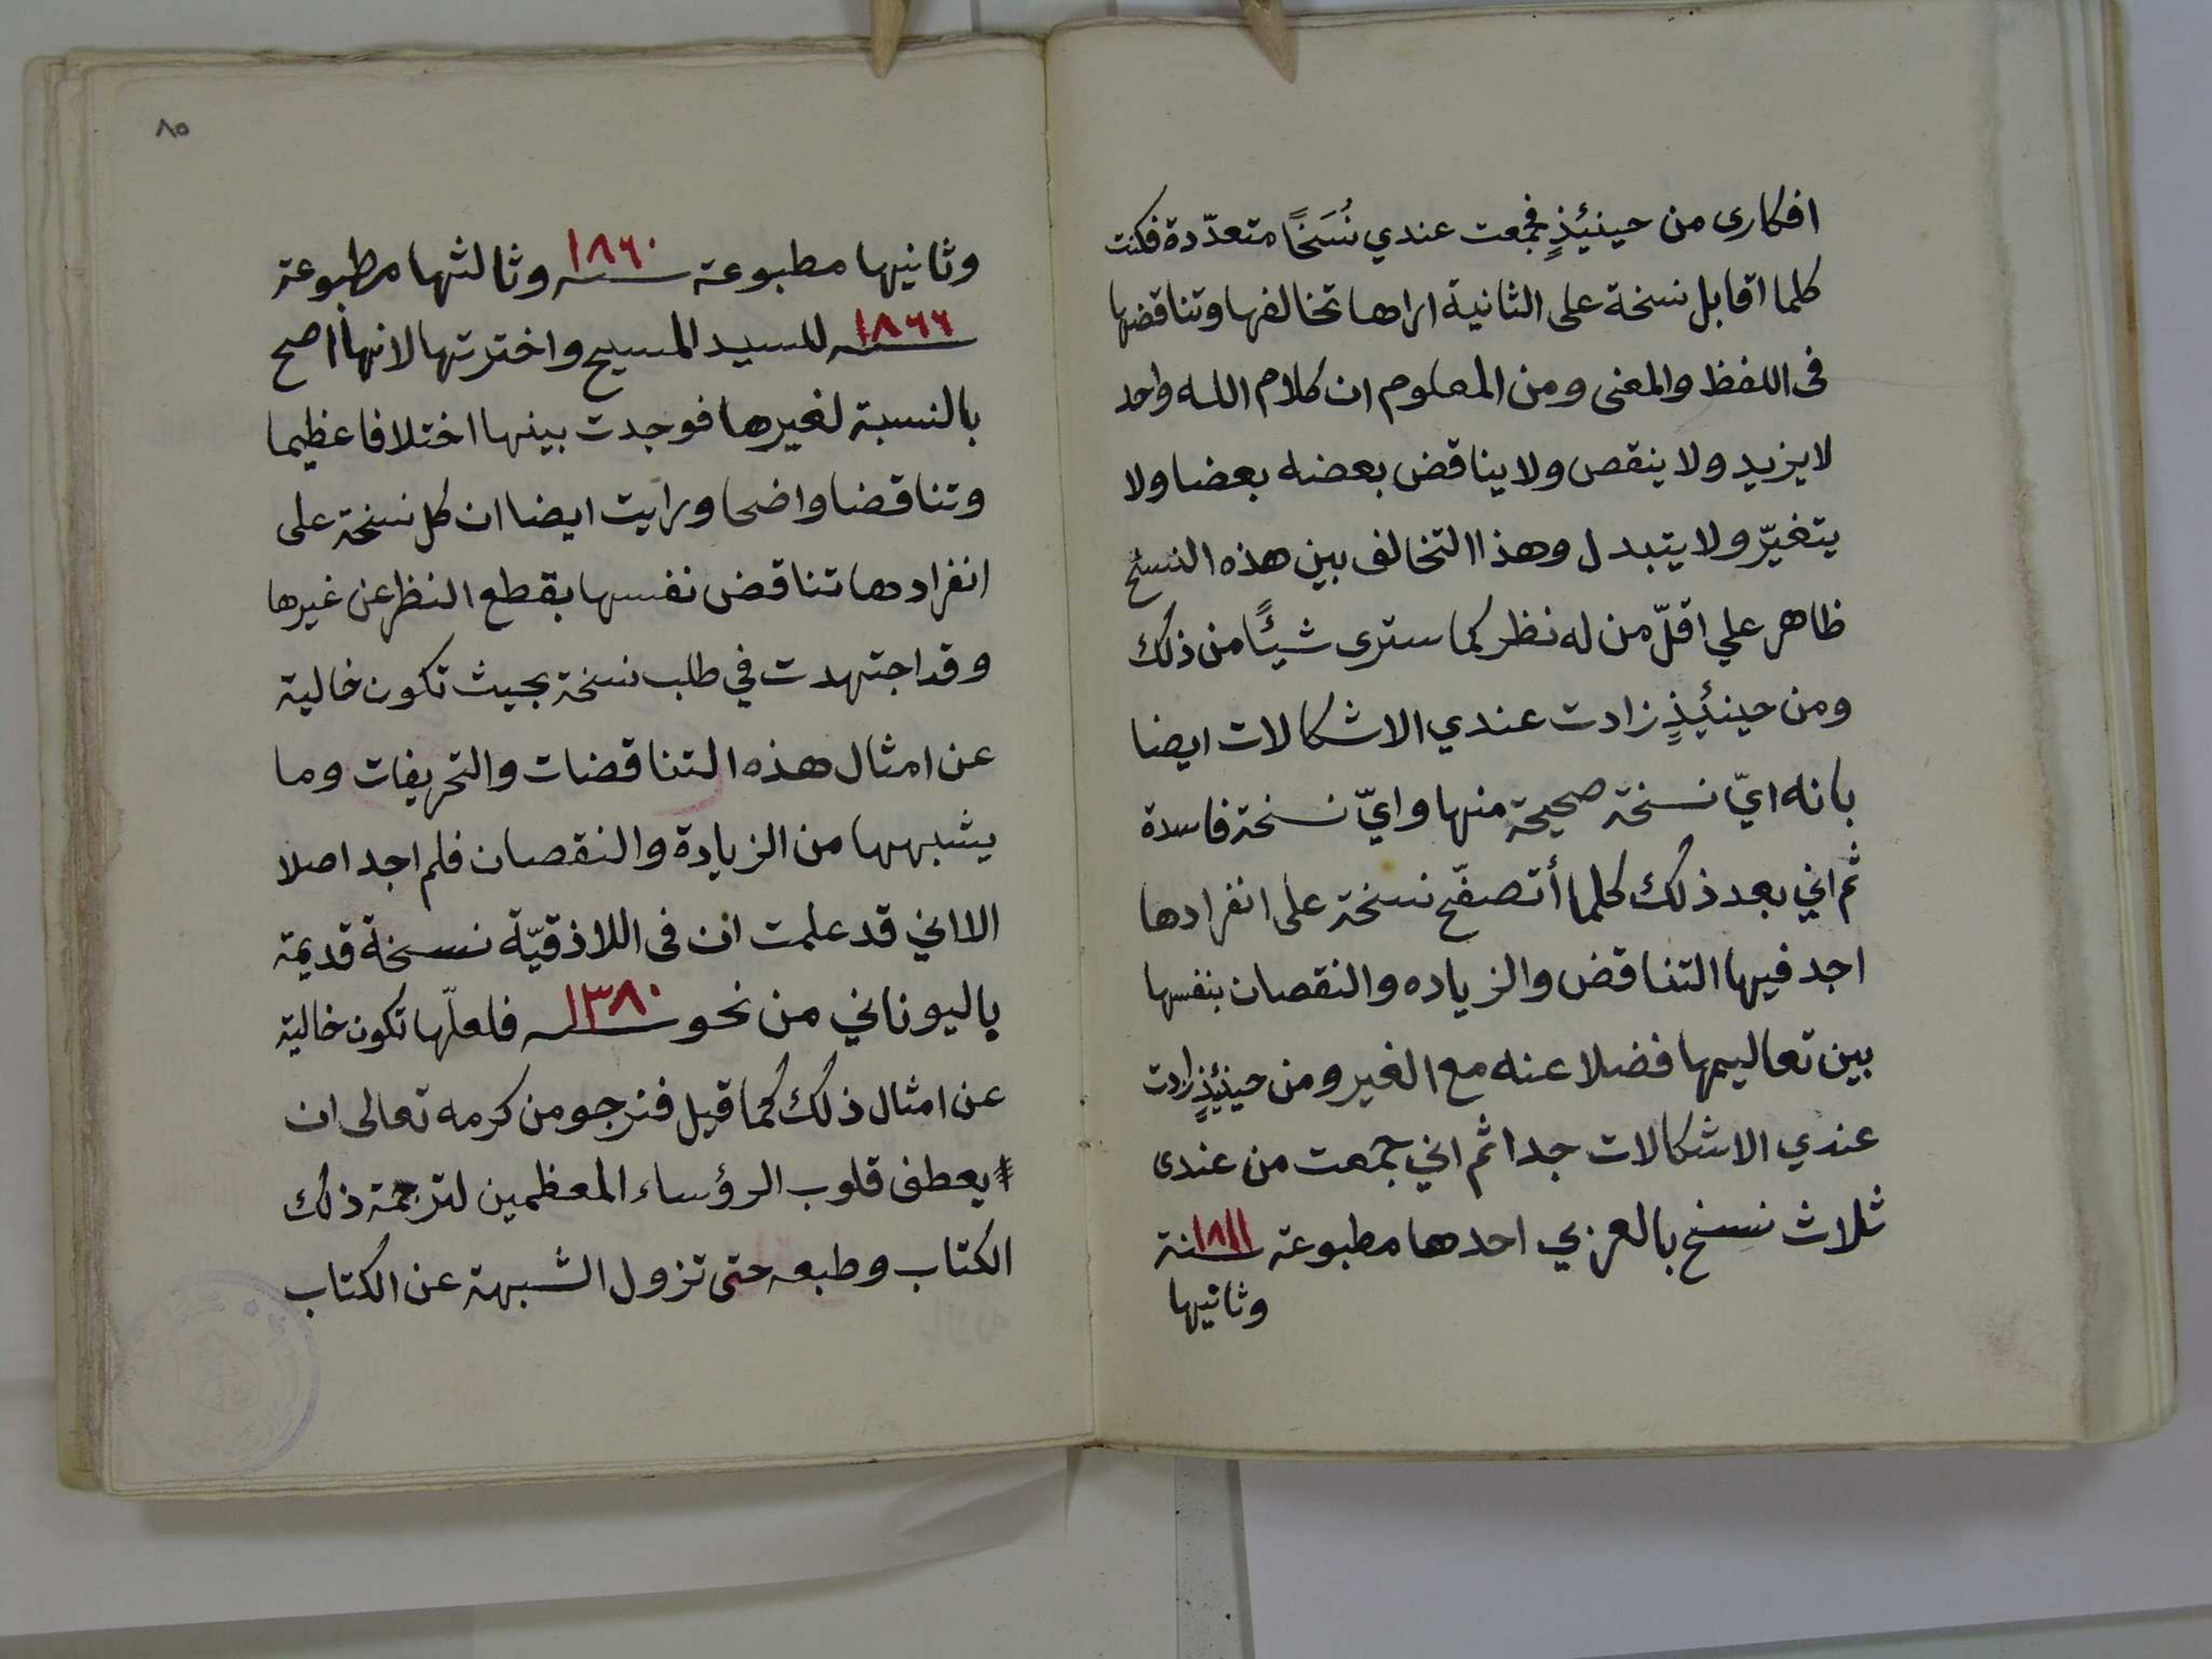 افكارى من حينيئذٍ فجمعت عندي نُسَخًا متعدّدة فكنت
كلما اقابل نسخة على الثانية اراها تخالفها وتناقضها
فى اللفظ والمعنى ومن المعلوم ان كلام الله واحد
لا يزيد ولا ينقص ولا يناقض بعضه بعضا ولا
يتغيّر ولا يتبدل وهذا التخالف بين هذه النسخ
ظاهر علي اقلّ من له نظر كما سترى شيئًا من ذلك
ومن حينيئذٍ زادت عندي الاشكالات ايضا
بانه ايّ نسخة صحيحة منها وايّ نسخة فاسدة
ثم اني بعد ذلك كلما أتصفّح نسخة على انفرادها
اجد فيها التناقض والزياده والنقصان بنفسها
بين تعاليمها فضلا عنه مع الغير ومن حينيئذٍ زادت
عندي الاشكالات جدا ثم اني جمعت من عندى
ثلاث نسخ بالعربي احدها مطبوعة سنة ١٨١١
وثانيها
٨٥
وثانيها مطبوعة سنه ١٨٦٠ وثالثها مطبوعة
سنه ١٨٦٦ للسيد المسيح واخترتها لانها اصح
بالنسبة لغيرها فوجدت بينها اختلافا عظيما
وتناقضا واضحا ورايت ايضا ان كل نسخة على
انفرادها تناقض نفسها بقطع النظر عن غيرها
وقد اجتهدت في طلب نسخة بحيث تكون خالية
عن امثال هذه التناقضات والتحريفات وما
يشبهها من الزيادة والنقصان فلم اجد اصلا
الا اني قد علمت ان فى اللاذقيّة نسخة قديمة
باليوناني من نحو سنه ١٣٨٠ فلعلّها تكون خالية
عن امثال ذلك كما قيل فنرجو من كرمه تعالى ان
يعطف قلوب الرؤساء المعظمين لترجمة ذلك
الكتاب وطبعه حتى تزول الشبهة عن الكتاب